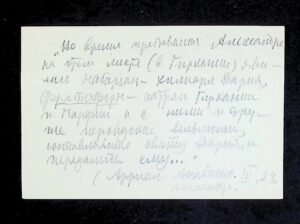 "Во время пребывания Александра
на этом месте (в Гиркании) яви-
лись Набарзан - хилиарх Дария,
Фратаферн - сатрап Гиркании
и Парфии а с ними и дру-
гие персидские вельможи,
составлявшие свиту Дария, и
передались ему..."
(Арриан Анабасис III, 23
Александра.